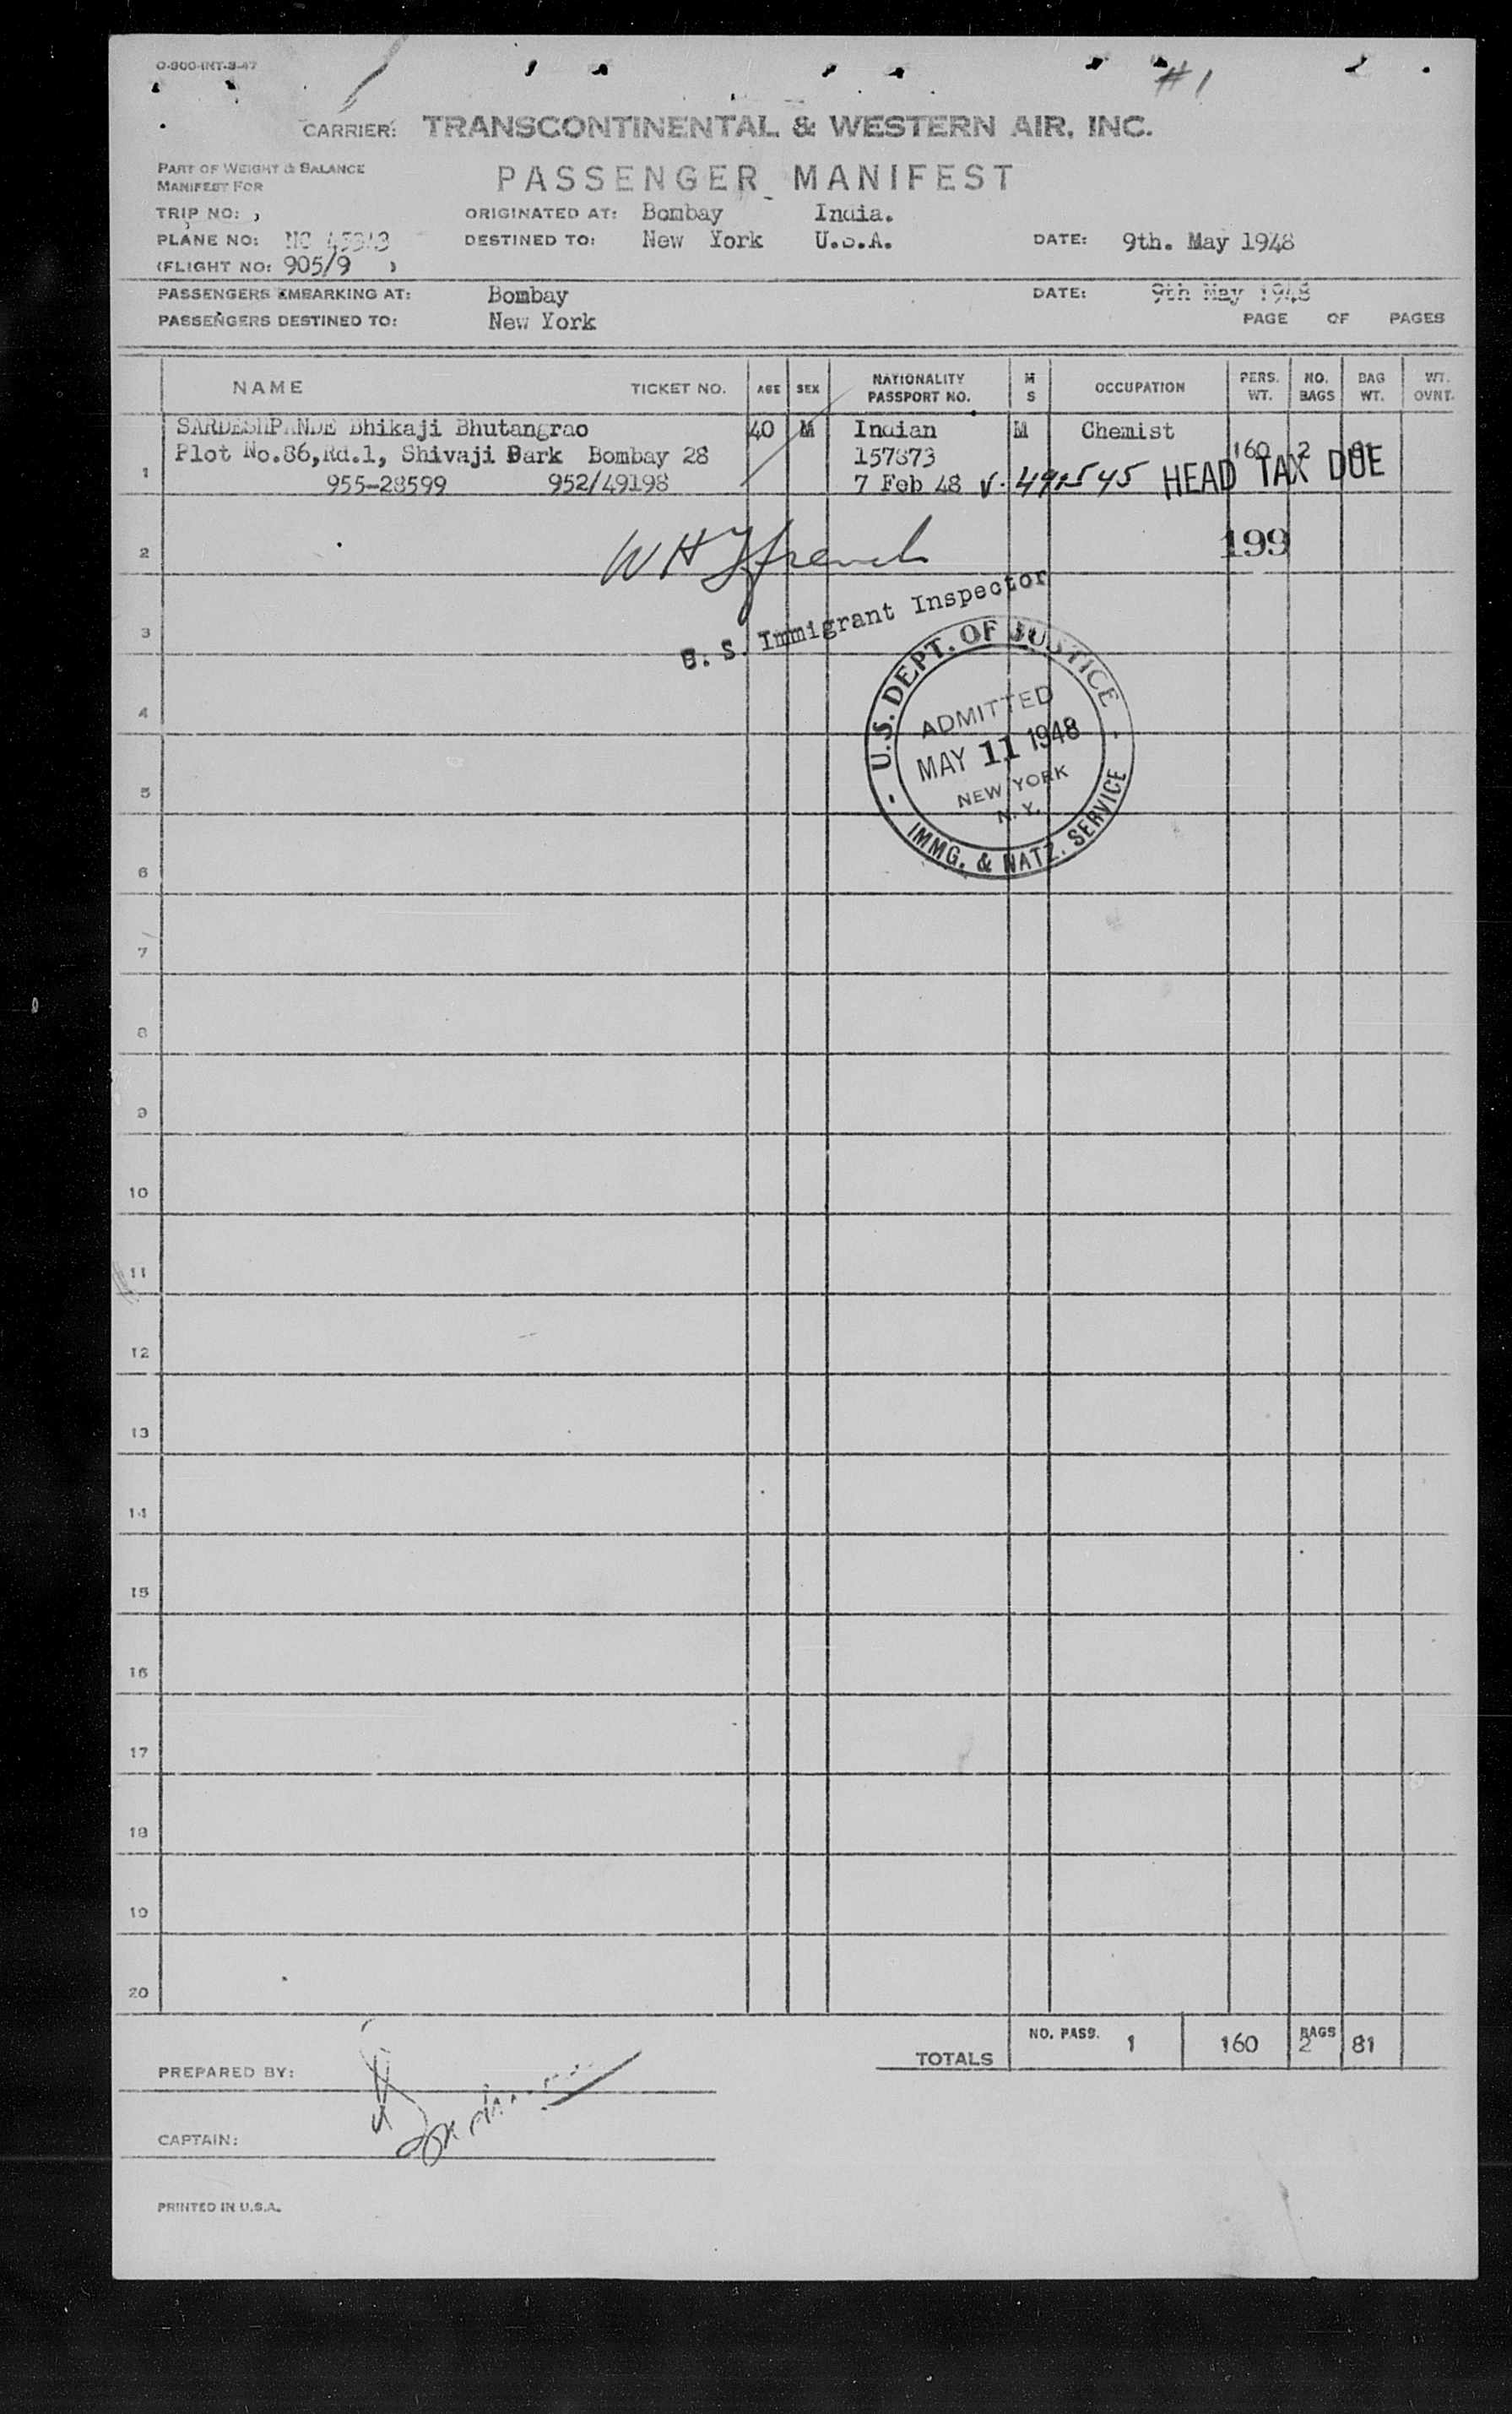 O-900-INT-3-47
#1
CARRIER: TRANSCONTINENTAL & WESTERN AIR, INC.
PART OF WEIGHT & BALANCE
MANIFEST FOR
PASSENGER MANIFEST
TRIP NO:
ORIGINATED AT: Bombay India.
PLANE NO: NC
DESTINED TO: New York U.S.A.
DATE: 9th. May 1948
(FLIGHT NO: 905/9 )
PASSENGERS EMBARKING AT: Bombay
DATE: 9th May 1948
PASSENGERS DESTINED TO: New York
PAGE OF PAGES
NAME TICKET NO. AGE SEX NATIONALITY PASSPORT NO. M S OCCUPATION PERS. WT. NO. BAGS BAG WT. WT. OVNT.
SARDESHPANDE Bhikaji Bhutangrao 40 M Indian M Chemist
Plot No.86,Rd.1, Shivaji Dark Bombay 28 157873 160 2 81
1 955-28599 952/49198 7 Feb 48 HEAD TAX DUE
2 W H French 199
U. S. Immigrant Inspector
3
U.S. DEPT. OF JUSTICE
ADMITTED
MAY 11 1948
NEW YORK
N.Y.
IMMG. & NATZ. SERVICE
4
5
6
7
8
9
10
11
12
13
14
15
16
17
18
19
20
TOTALS NO. PASS. 1 160 BAGS 2 81
PREPARED BY:
CAPTAIN:
PRINTED IN U.S.A.